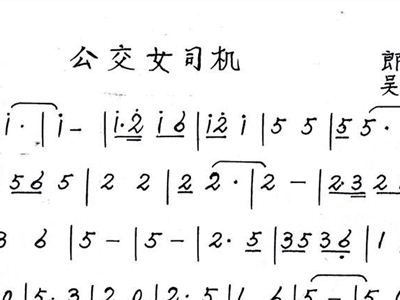 公交女司机
吴
i · | i - | i · 2̇ i 6 | i 2̇ i | 5 5 | 5 5 ·
5 6 5 | 2 2 | 2 2 · | 2 - | 2 · 3 2
3 6 | 5 - | 5 - | 2 · 5 | 3 5 3 6̣ | 1
| 5 · 3 | 2 0 | 2 · 5 | 1 6 | 5 - | 5